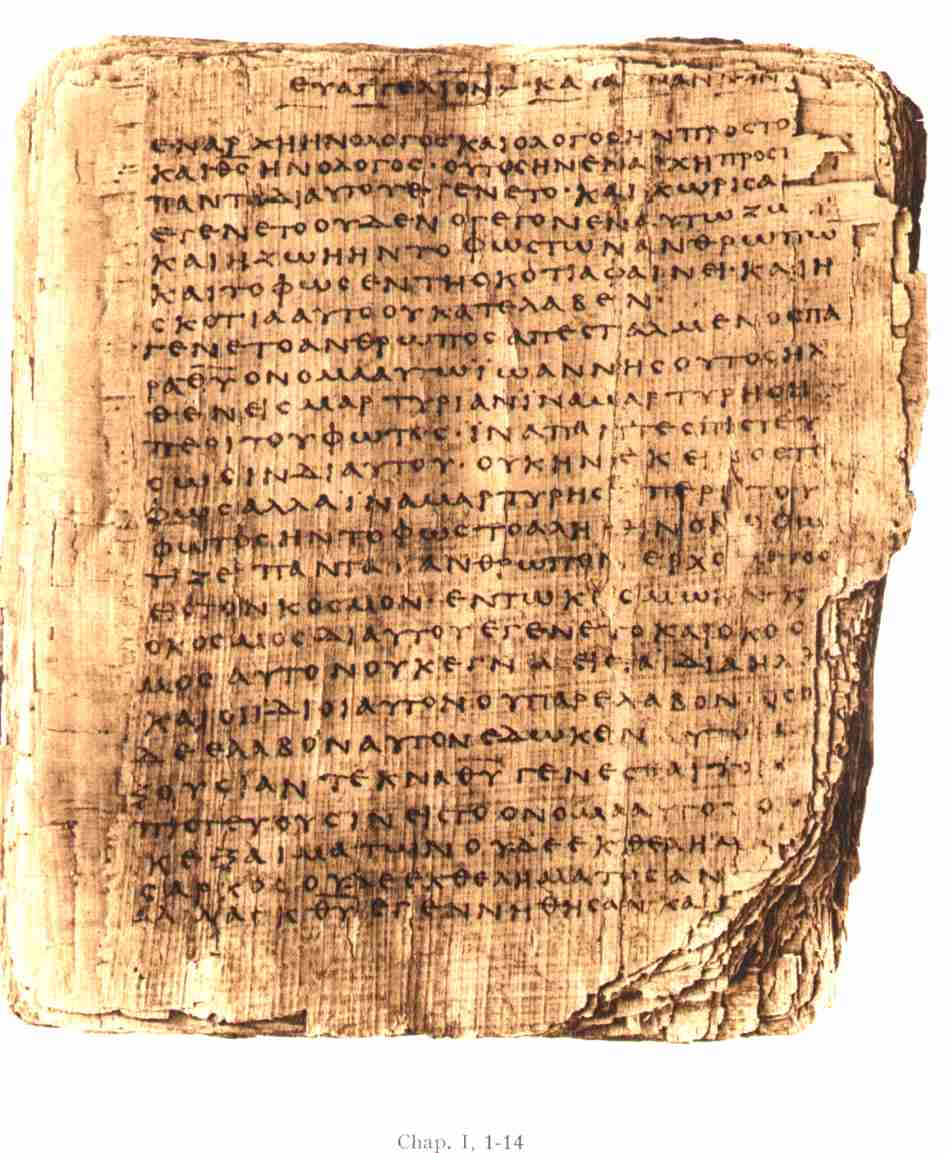 ΕΥΑΓΓΕΛΙΟΝ ΚΑΤΑ
ΕΝΑΡΧΗΗΝΟΛΟΓΟΣΚΑΙΟΛΟΓΟΣΗΝΠΡΟΣΤΟ
ΚΑΙΘΣΗΝΟΛΟΓΟΣ·ΟΥΤΟΣΗΝΕΝΑΡΧΗΠΡΟΣΤ
ΠΑΝΤΑΔΙΑΥΤΟΥΕΓΕΝΕΤΟ·ΚΑΙΧΩΡΙΣΑ
ΕΓΕΝΕΤΟΟΥΔΕΝΟΓΕΓΟΝΕΝΕΝΑΥΤΩΖΩ
ΚΑΙΗΖΩΗΗΝΤΟΦΩΣΤΩΝΑΝΘΡΩΠΩ
ΚΑΙΤΟΦΩΣΕΝΤΗΣΚΟΤΙΑΦΑΙΝΕΙ·ΚΑΙΗ
ΣΚΟΤΙΑΑΥΤΟΟΥΚΑΤΕΛΑΒΕΝ·
ΓΕΝΕΤΟΑΝΘΡΩΠΟΣΑΠΕΣΤΑΛΜΕΝΟΣΠΑ
ΡΑΘΥΟΝΟΜΑΑΥΤΩΪΩΑΝΝΗΣΟΥΤΟΣΗΛ
ΘΕΝΕΙΣΜΑΡΤΥΡΙΑΝΪΝΑΜΑΡΤΥΡΗΣΗ
ΠΕΡΙΤΟΥΦΩΤΟΣ·ΪΝΑΠΑΝΤΕΣΠΙΣΤΕΥ
ΣΩΣΙΝΔΙΑΥΤΟΥ·ΟΥΚΗΝΕΚΕΙΝΟΣΤΟ
ΦΩΣΑΛΛΑΪΝΑΜΑΡΤΥΡΗΣΗΠΕΡΙΤΟΥ
ΦΩΤΟΣΗΝΤΟΦΩΣΤΟΑΛΗΘΗΝΟΝΟΦΩ
ΤΙΖΕΙΠΑΝΤΑΑΝΘΡΩΠΟΝΕΡΧΟΜΕΝΟ
ΕΙΣΤΟΝΚΟΣΜΟΝ·ΕΝΤΩΚΟΣΜΩΗΝΚ
ΟΚΟΣΜΟΣΔΙΑΥΤΟΥΕΓΕΝΕΤΟΚΑΙΟΚΟΣ
ΜΟΣΑΥΤΟΝΟΥΚΕΓΝΩΕΙΣΤΑΙΔΙΑΗΛΘ
ΚΑΙΟΙΙΔΙΟΙΑΥΤΟΝΟΥΠΑΡΕΛΑΒΟΝ·ΟΣΟ
ΔΕΕΛΑΒΟΝΑΥΤΟΝΕΔΩΚΕΝΑΥΤΟΙ
ΞΟΥΣΙΑΝΤΕΚΝΑΘΥΓΕΝΕΣΘΑΙΤΟΙ
ΠΙΣΤΕΥΟΥΣΙΝΕΙΣΤΟΟΝΟΜΑΑΥΤΟΥΟ
ΚΕΞΑΙΜΑΤΩΝΟΥΔΕΕΚΘΕΛΗΜΑ
ΣΑΡΚΟΣΟΥΔΕΕΚΘΕΛΗΜΑΤΟΣΑΝ
ΑΛΛΑΕΚΘΥΕΓΕΝΝΗΘΗΣΑΝΚΑΙ
Chap. I, 1-14